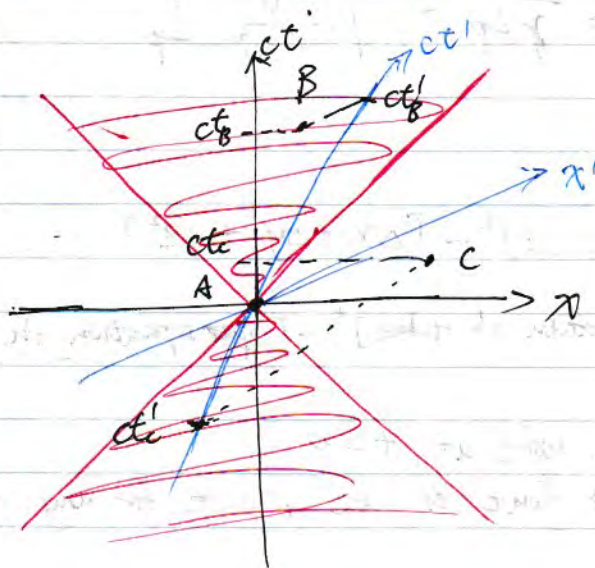 ct
ct'
B
ct'_B
ct_B
x'
ct_c
C
A
x
ct'_c